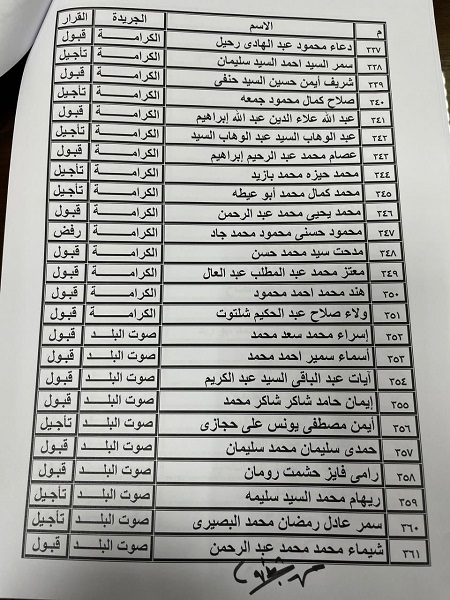 م الاسم الجريدة القرار
٣٣٧ دعاء محمود عبد الهادى رحيل الكرامة قبول
٣٣٨ سمر السيد احمد السيد سليمان الكرامة تأجيل
٣٣٩ شريف أيمن حسين السيد حنفى الكرامة قبول
٣٤٠ صلاح كمال محمود جمعه الكرامة تأجيل
٣٤١ عبد الله علاء الدين عبد الله إبراهيم الكرامة قبول
٣٤٢ عبد الوهاب السيد عبد الوهاب السيد الكرامة تأجيل
٣٤٣ عصام محمد عبد الرحيم إبراهيم الكرامة قبول
٣٤٤ محمد حيزه محمد بازيد الكرامة تأجيل
٣٤٥ محمد كمال محمد أبو عيطه الكرامة تأجيل
٣٤٦ محمد يحيى محمد عبد الرحمن الكرامة قبول
٣٤٧ محمود حسنى محمود محمد جاد الكرامة رفض
٣٤٨ مدحت سيد محمد حسن الكرامة قبول
٣٤٩ معتز محمد عبد المطلب عبد العال الكرامة قبول
٣٥٠ هند محمد احمد محمود الكرامة قبول
٣٥١ ولاء صلاح عبد الحكيم شلتوت الكرامة قبول
٣٥٢ إسراء محمد سعد محمد صوت البلد قبول
٣٥٣ أسماء سمير احمد محمد صوت البلد قبول
٣٥٤ آيات عبد الباقى السيد عبد الكريم صوت البلد قبول
٣٥٥ إيمان حامد شاكر شاكر محمد صوت البلد قبول
٣٥٦ أيمن مصطفى يونس على حجازى صوت البلد تأجيل
٣٥٧ حمدى سليمان محمد سليمان صوت البلد قبول
٣٥٨ رامى فايز حشمت رومان صوت البلد قبول
٣٥٩ ريهام محمد السيد سليمه صوت البلد تأجيل
٣٦٠ سمر عادل رمضان محمد البصيرى صوت البلد تأجيل
٣٦١ شيماء محمد محمد عبد الرحمن صوت البلد قبول